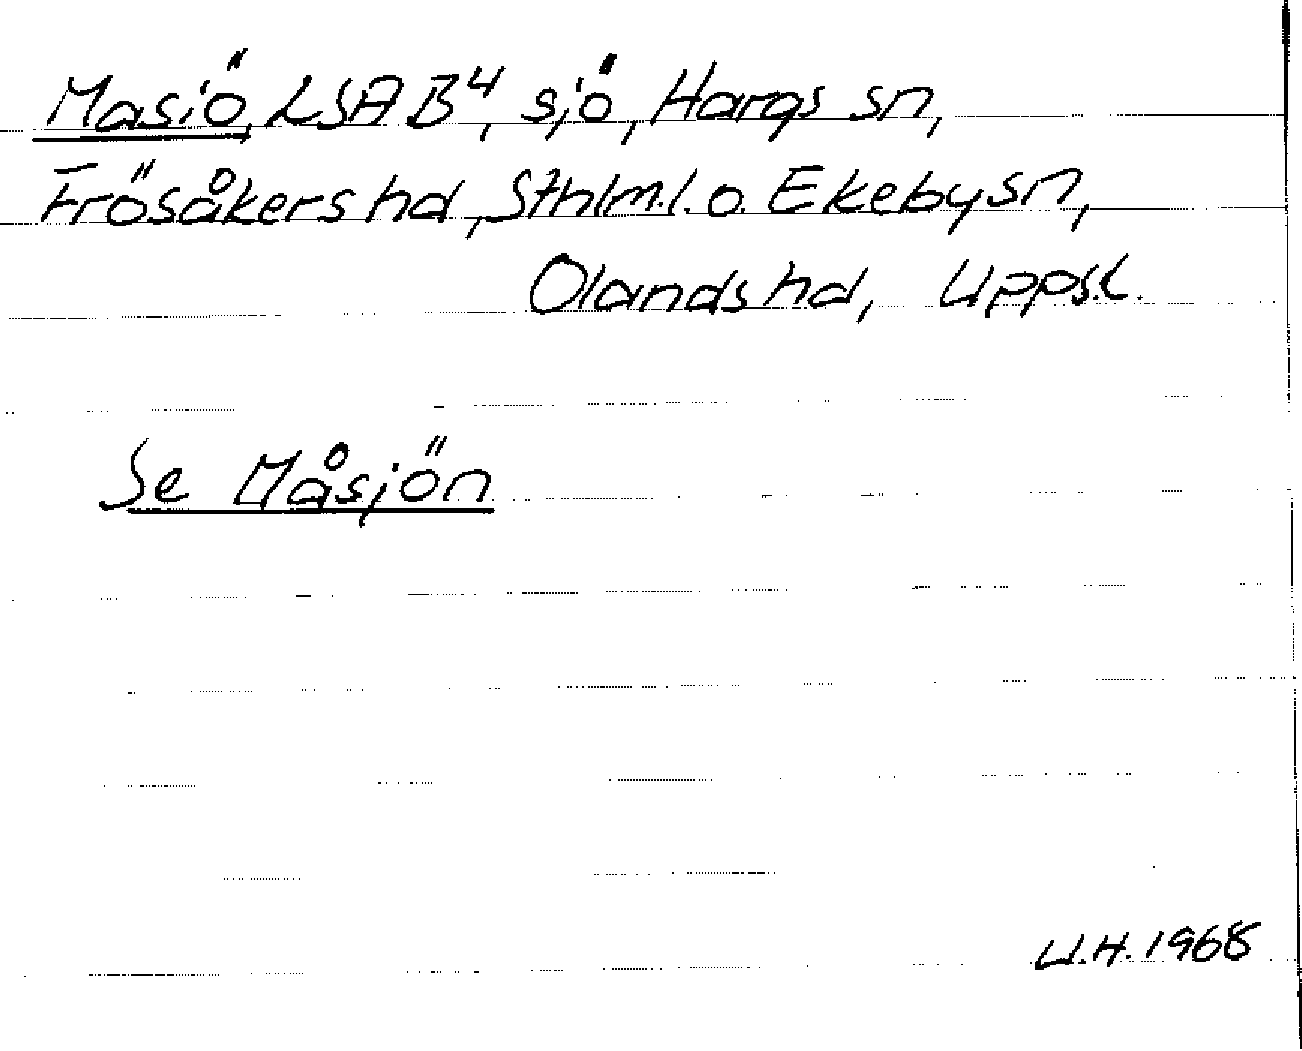 Masiö, LSA B⁴, sjö, Hargs sn,
Frösåkers hd, Sthlm.l. o. Ekeby sn,
Olands hd, Upps.l.
Se Måsjön
U.H. 1968